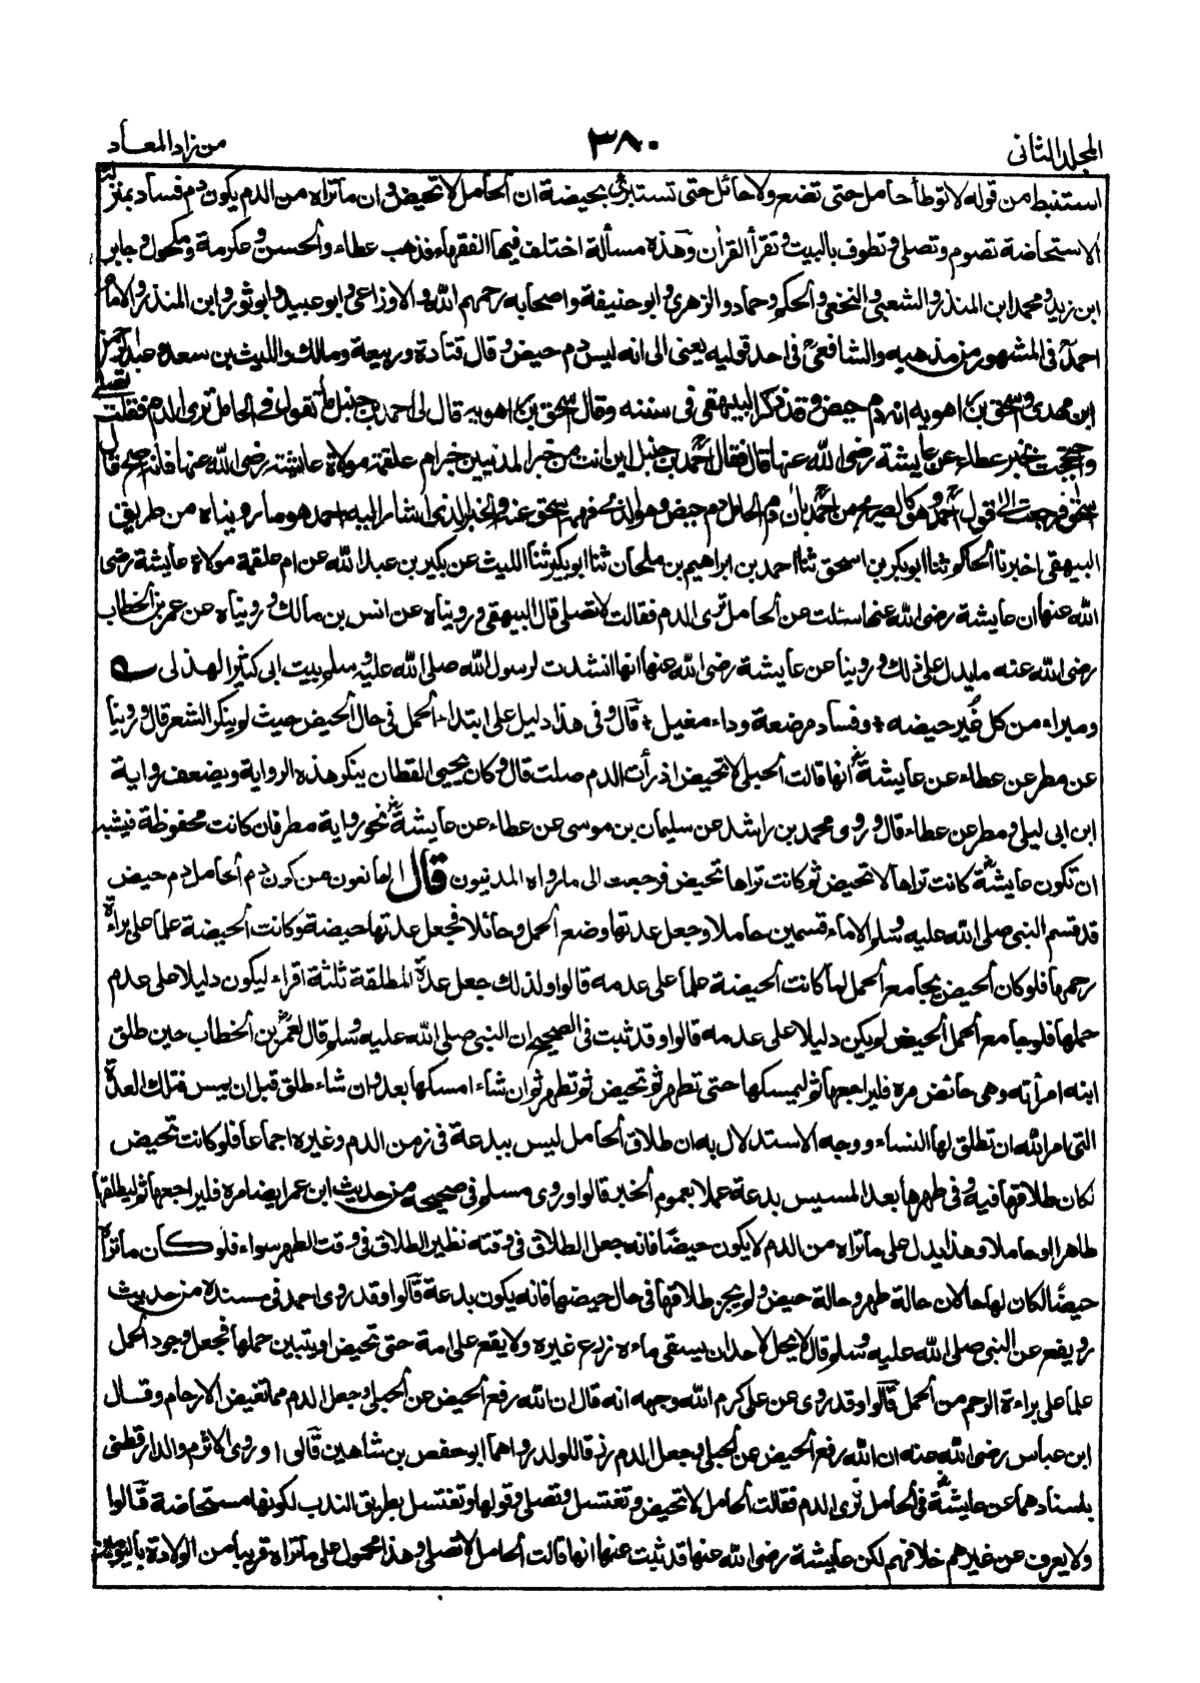 المجلد الثانى
٣٨٠
من زاد المعاد
استنبط من قوله لا توطأ حامل حتى تضع ولا حائل حتى تستبرئ بحيضة ان الحامل لا تحيض وان ما تراه من الدم يكون دم فساد بمنزلة
الاستحاضة تصوم وتصلى وتطوف بالبيت وتقرأ القرأن وهذه مسألة اختلف فيها الفقهاء فذهب عطاء والحسن وعكرمة ومكحول وجابر
ابن زيد ومحمد ابن المنذر والشعبى والنخعى والحكم وحماد والزهرى وابو حنيفة واصحابه رحمهم الله والاوزاعى وابو عبيد وابو ثور وابن المنذر والامام
احمد فى المشهور من مذهبه والشافعى فى احد قوليه يعنى الى انه ليس دم حيض وقال قتادة وربيعة ومالك والليث بن سعد وعبد الرحمن
ابن مهدى واسحق بن راهويه انه دم حيض وقد ذكر البيهقى فى سننه وقال اسحق بن راهويه قال لى احمد بن حنبل ما تقول فى الحامل ترى الدم فقلت تصلى
واحتججت بخبر عطاء عن عايشة رضى الله عنها قال فقال احمد بن حنبل اين انت من خبر المدنيين خبر ام علقمة مولاة عايشة رضى الله عنها فانه اصح قال
اسحق فرجعت الى قول احمد وهو كالصريح من احمد بان دم الحامل دم حيض وهو الذى فهمه اسحق عنه والخبر الذى اشار اليه احمد هو ما رويناه من طريق
البيهقى اخبرنا الحاكم ثنا ابو بكر بن اسحق ثنا احمد بن ابراهيم بن ملحان ثنا ابو بكير ثنا الليث عن بكير بن عبد الله عن ام علقمة مولاة عايشة رضى
الله عنها ان عايشة رضى الله عنها سئلت عن الحامل ترى الدم فقالت لا تصلى قال البيهقى ورويناه عن انس بن مالك ورويناه عن عمر بن الخطاب
رضى الله عنه ما يدل على ذلك وروينا عن عايشة رضى الله عنها انها انشدت لرسول الله صلى الله عليه وسلم بيت ابى كثير الهذلى
ومبراء من كل غُبر حيضه + وفساد مرضعة وداء مغيل + قال وفى هذا دليل على ابتداء الحمل فى حال الحيض حيث لم ينكر الشعر قال وروينا
عن مطر عن عطاء عن عايشة انها قالت الحبلى لا تحيض اذ رأت الدم صلت قال وكان يحيى القطان ينكر هذه الرواية ويضعف رواية
ابن ابى ليلى ومطر عن عطاء قال وروى محمد بن راشد عن سليمان بن موسى عن عطاء عن عايشة نحو رواية مطر فان كانت محفوظة فيشبه
ان تكون عايشة كانت تراها لا تحيض ثم كانت تراها تحيض فرجعت الى ما رواه المدنيون قال المانعون من كون دم الحامل دم حيض
قد قسم النبى صلى الله عليه وسلم الاماء قسمين حاملا وجعل عدتها وضع الحمل وحائلا فجعل عدتها حيضة فكانت الحيضة علما على براءة
رحمها فلو كان الحيض يجامع الحمل لما كانت الحيضة علما على عدمه قالوا ولذلك جعل عدة المطلقة ثلثة اقراء ليكون دليلا على عدم
حملها فلو جامع الحمل الحيض لم يكن دليلا على عدمه قالوا وقد ثبت فى الصحيح ان النبى صلى الله عليه وسلم قال لعمر بن الخطاب حين طلق
ابنه امرأته وهى حائض مره فليراجعها ثم ليمسكها حتى تطهر ثم تحيض ثم تطهر ثم ان شاء امسكها بعد وان شاء طلق قبل ان يمس فتلك العدة
التى امر الله ان تطلق لها النساء ووجه الاستدلال به ان طلاق الحامل ليس ببدعة فى زمن الدم وغيره اجماعا فلو كانت تحيض
لكان طلاقها فيه وفى طهرها بعد المسيس بدعة عملا بعموم الخبر قالوا وروى مسلم فى صحيحه من حديث ابن عمر ايضا مره فليراجعها ثم ليطلقها
طاهرا او حاملا وهذا يدل على ما تراه من الدم لا يكون حيضا فانه جعل الطلاق فى وقته نظير الطلاق فى وقت الطهر سواء فلو كان ما تراه
حيضا لكان لها حالان حالة طهر وحالة حيض ولم يجز طلاقها فى حال حيضها فانه يكون بدعة قالوا وقد روى احمد فى مسنده من حديث
رويفع عن النبى صلى الله عليه وسلم قال لا يحل لاحد ان يسقى ماءه زرع غيره ولا يقع على امة حتى تحيض او يتبين حملها فجعل وجود الحمل
علما على براءة الرحم من الحمل قالوا وقد روى عن على كرم الله وجهه انه قال ان الله رفع الحيض عن الحبلى وجعل الدم مما تغيض الارحام وقال
ابن عباس رضى الله عنه ان الله رفع الحيض عن الحبلى وجعل الدم رزقا للولد رواهما ابو حفص بن شاهين قالوا وروى الاثرم والدارقطنى
باسنادهما عن عايشة فى الحامل ترى الدم فقالت الحامل لا تحيض وتغتسل وتصلى وقولها وتغتسل بطريق الندب لكونها مستحاضة قالوا
ولا يعرف عن غيرهم خلافهم لكن عايشة رضى الله عنها قد ثبت عنها انها قالت الحامل لا تصلى وهذا محمول على ما تراه قريبا من الولادة باليومين